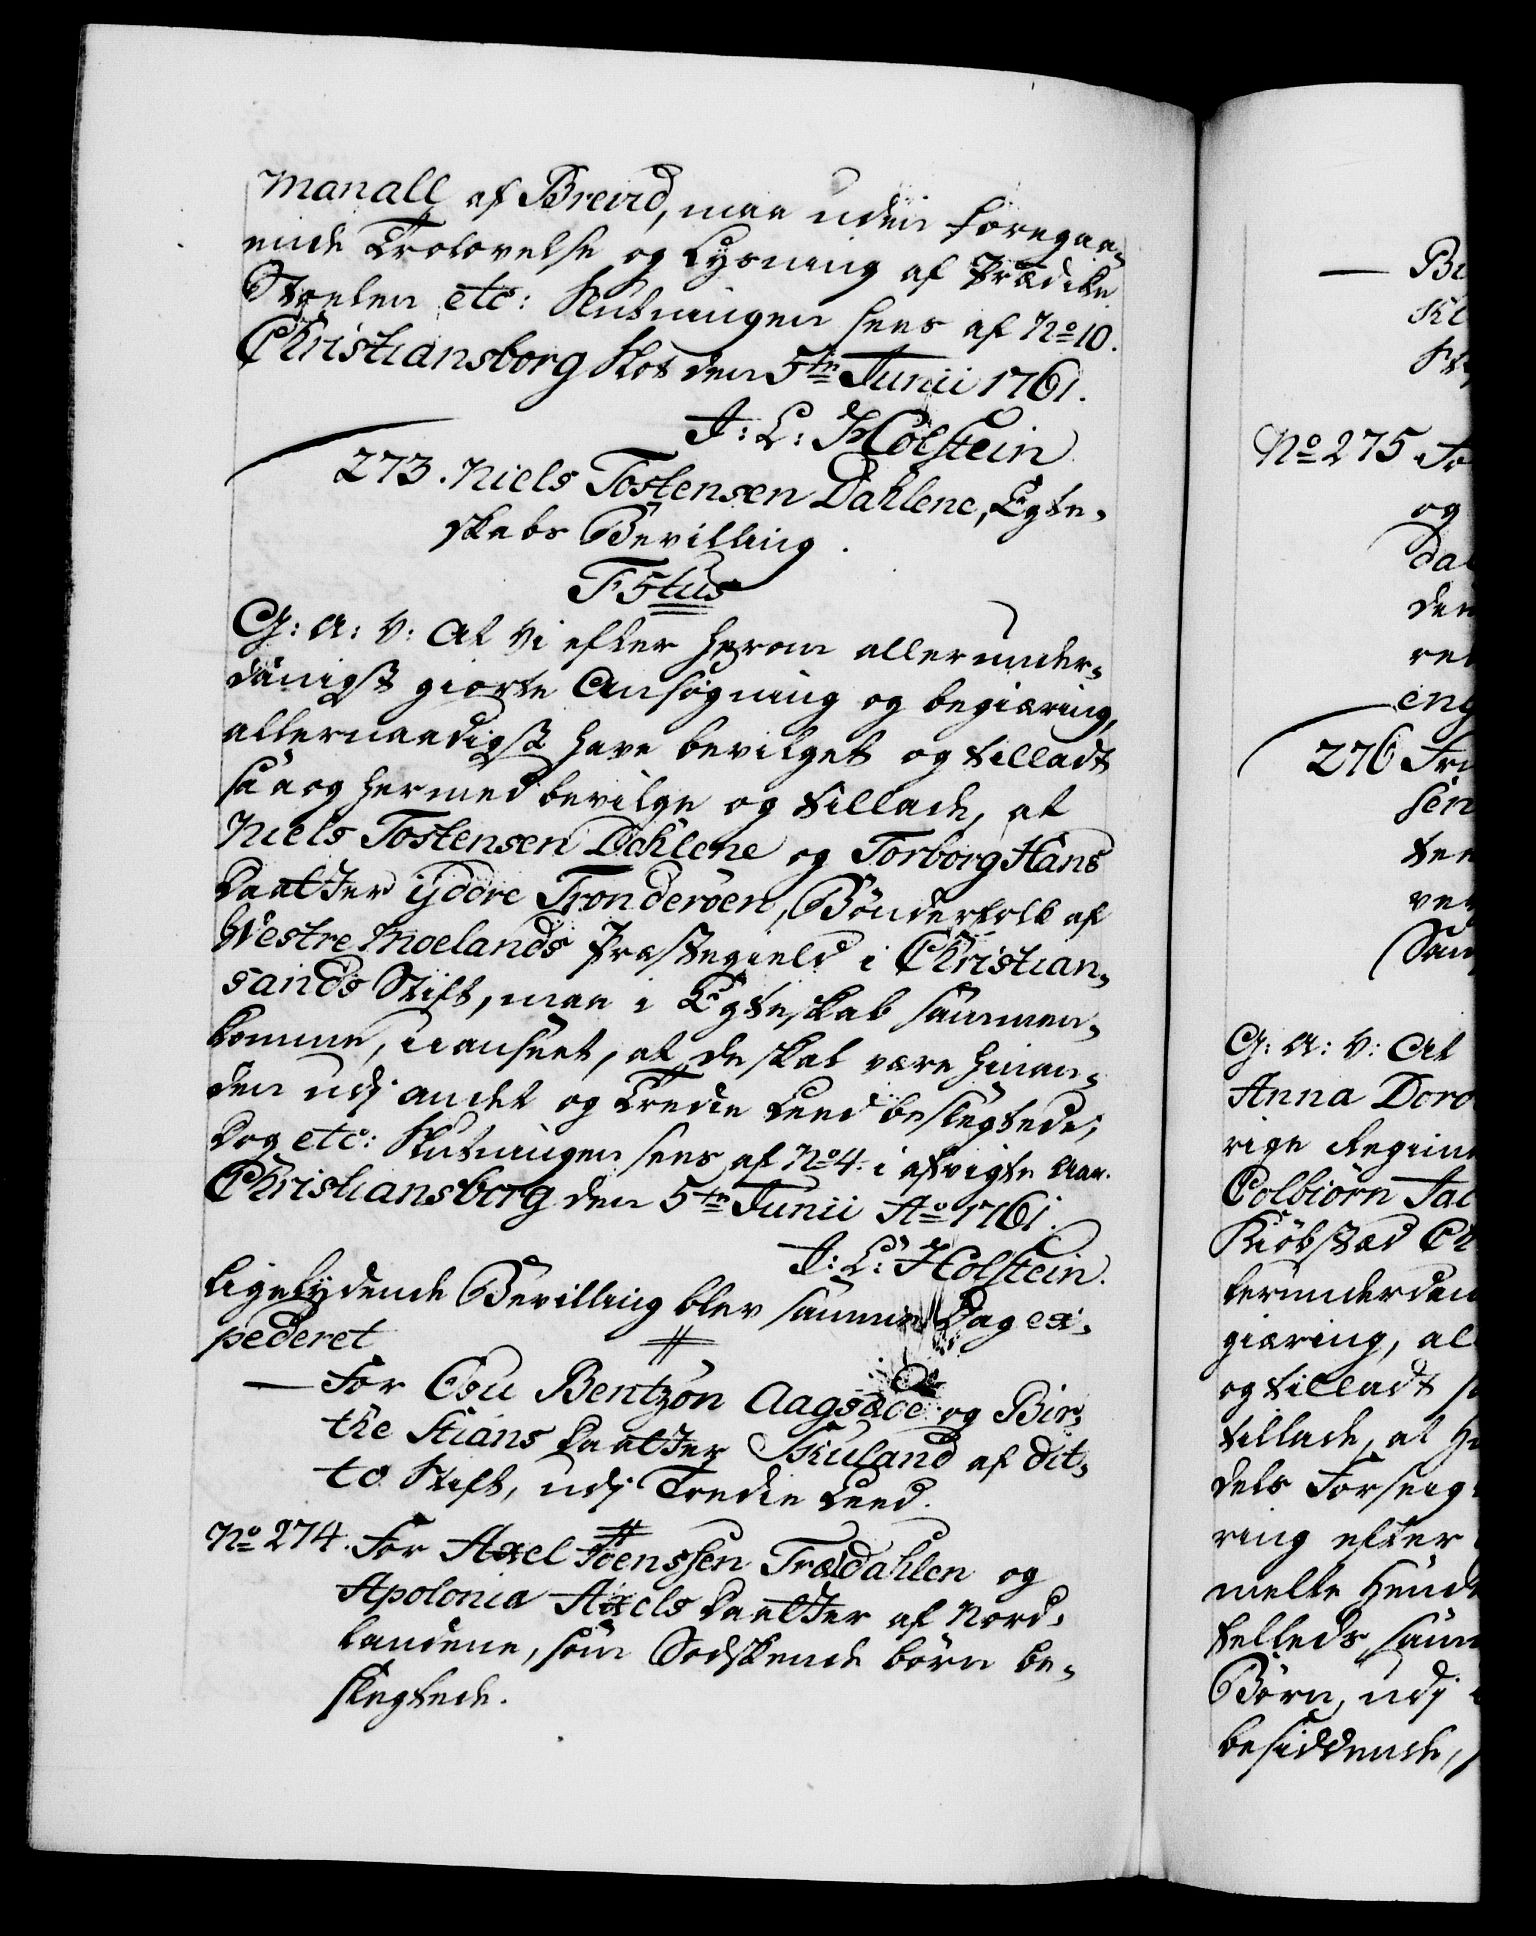 Manall af Brevid, maa uden foregaa-
ende Trolovelse og Lysning af Prædike
Stoelen etc: Slutningen sees af No 10.
Christiansborg Slot den 5te Junii 1761.
J: L: Holstein
273. Niels Tostensen Dahlene, Egte-
skabs Bevilling.
F 5tus
G: A: V: At Vi efter herom allerunder-
danigst giorte Ansøgning og begiæring,
allernaadigst have bevilget og tilladt
saa og hermed bevilge og tillade, at
Niels Tostensen Dahlene og Torborg Hans
Daatter ydere Tronderöen, Bönderfolk af
Westre Moelands Præstegield i Christian-
sands Stift, maa i Egteskab sammen-
komme, uanseet, at de skal være hinan-
den udj andet og Tredie Leed beslegtede;
Dog etc: Slutningen sees af No 4. i afvigte Aar.
Christiansborg den 5te Junii Ao 1761.
J: L: Holstein.
Ligelydende Bevilling blev samme Dag ex-
pederet
— For Edu Bentzon Aagsæde og Bir-
the Stians Daatter Skuland af dit-
to Stift, udj Tredie Leed.
No 274. For Axel Joenssen Trældahlen og
Apolonia Axels Daatter af Nord-
landene, som Sødskende börn be-
slegtede.
— Bu
No 275 Fo
og
dal
den
ret
eng
276 Fri
sen
ten
ved
G: A: V: At
Anna Doro
rige Regim
Colbiörn Jac
Kiöbstæd Ch
lerunderdan
giæring, al
og tilladt s
tillade, at H
dels Forseig
ring efter
melte Hend
felleds sam
Börn, udj
besiddende,